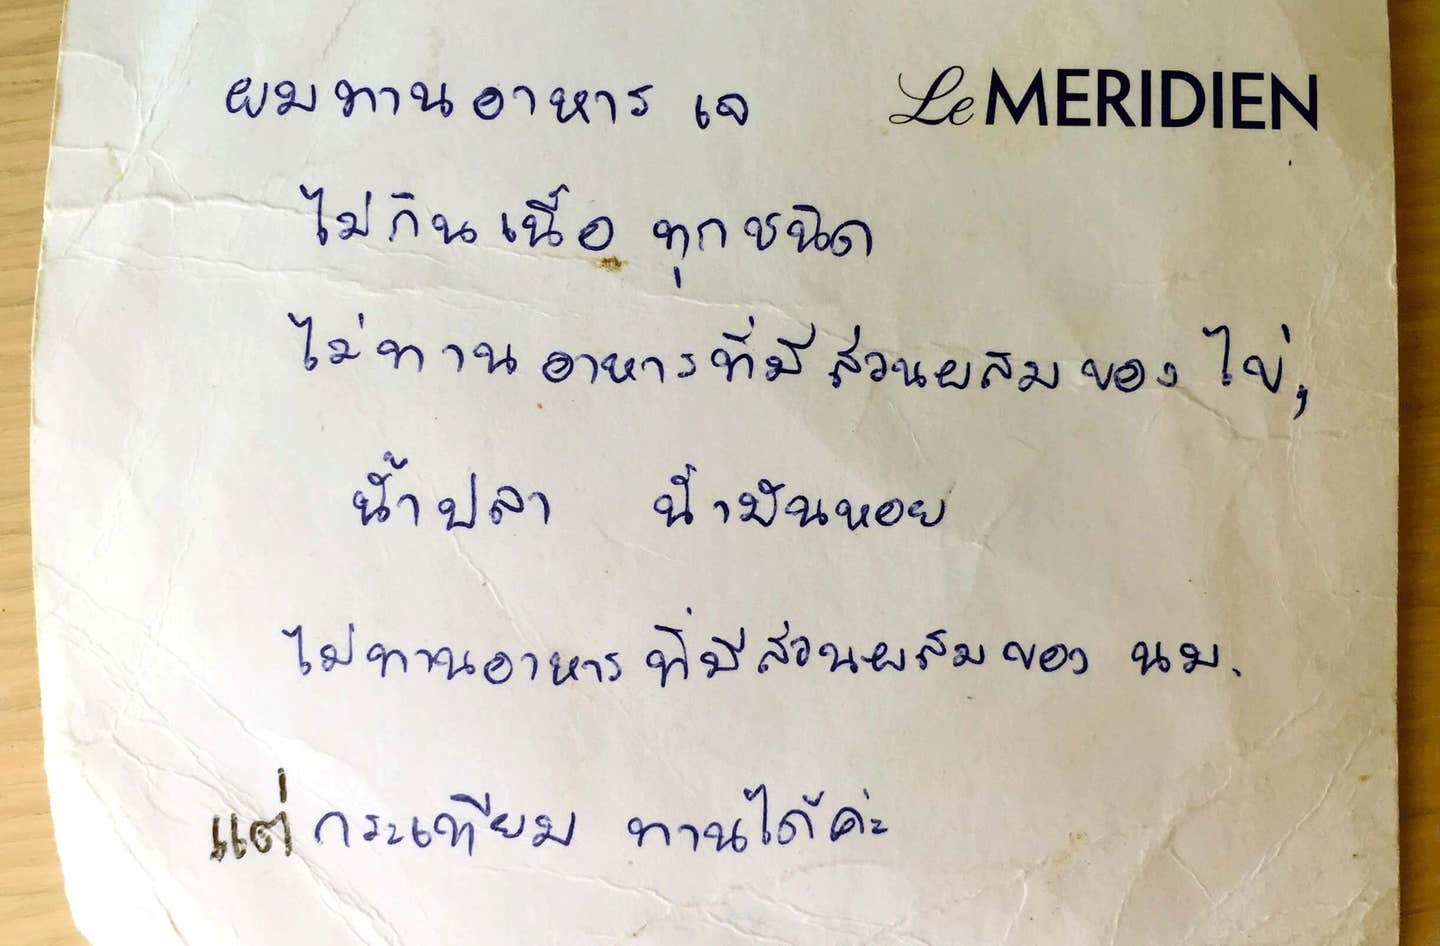 ผมทานอาหาร เจ
Le MERIDIEN
ไม่กินเนื้อ ทุกชนิด
ไม่ทานอาหารที่มีส่วนผสมของ ไข่,
น้ำปลา น้ำมันหอย
ไม่ทานอาหารที่มีส่วนผสมของ นม.
แต่กระเทียม ทานได้ค่ะ